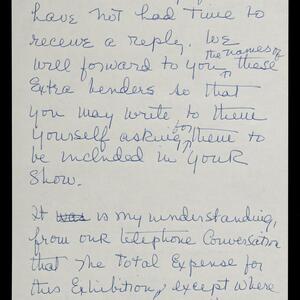 have not had time to
receive a reply. We
will forward to you the names of these
Extra lenders so that
you may write to them
yourself asking for them to
be included in your
Show.
It was is my understanding,
from our telephone Conversation
that The Total Expense for
this Exhibition, except where